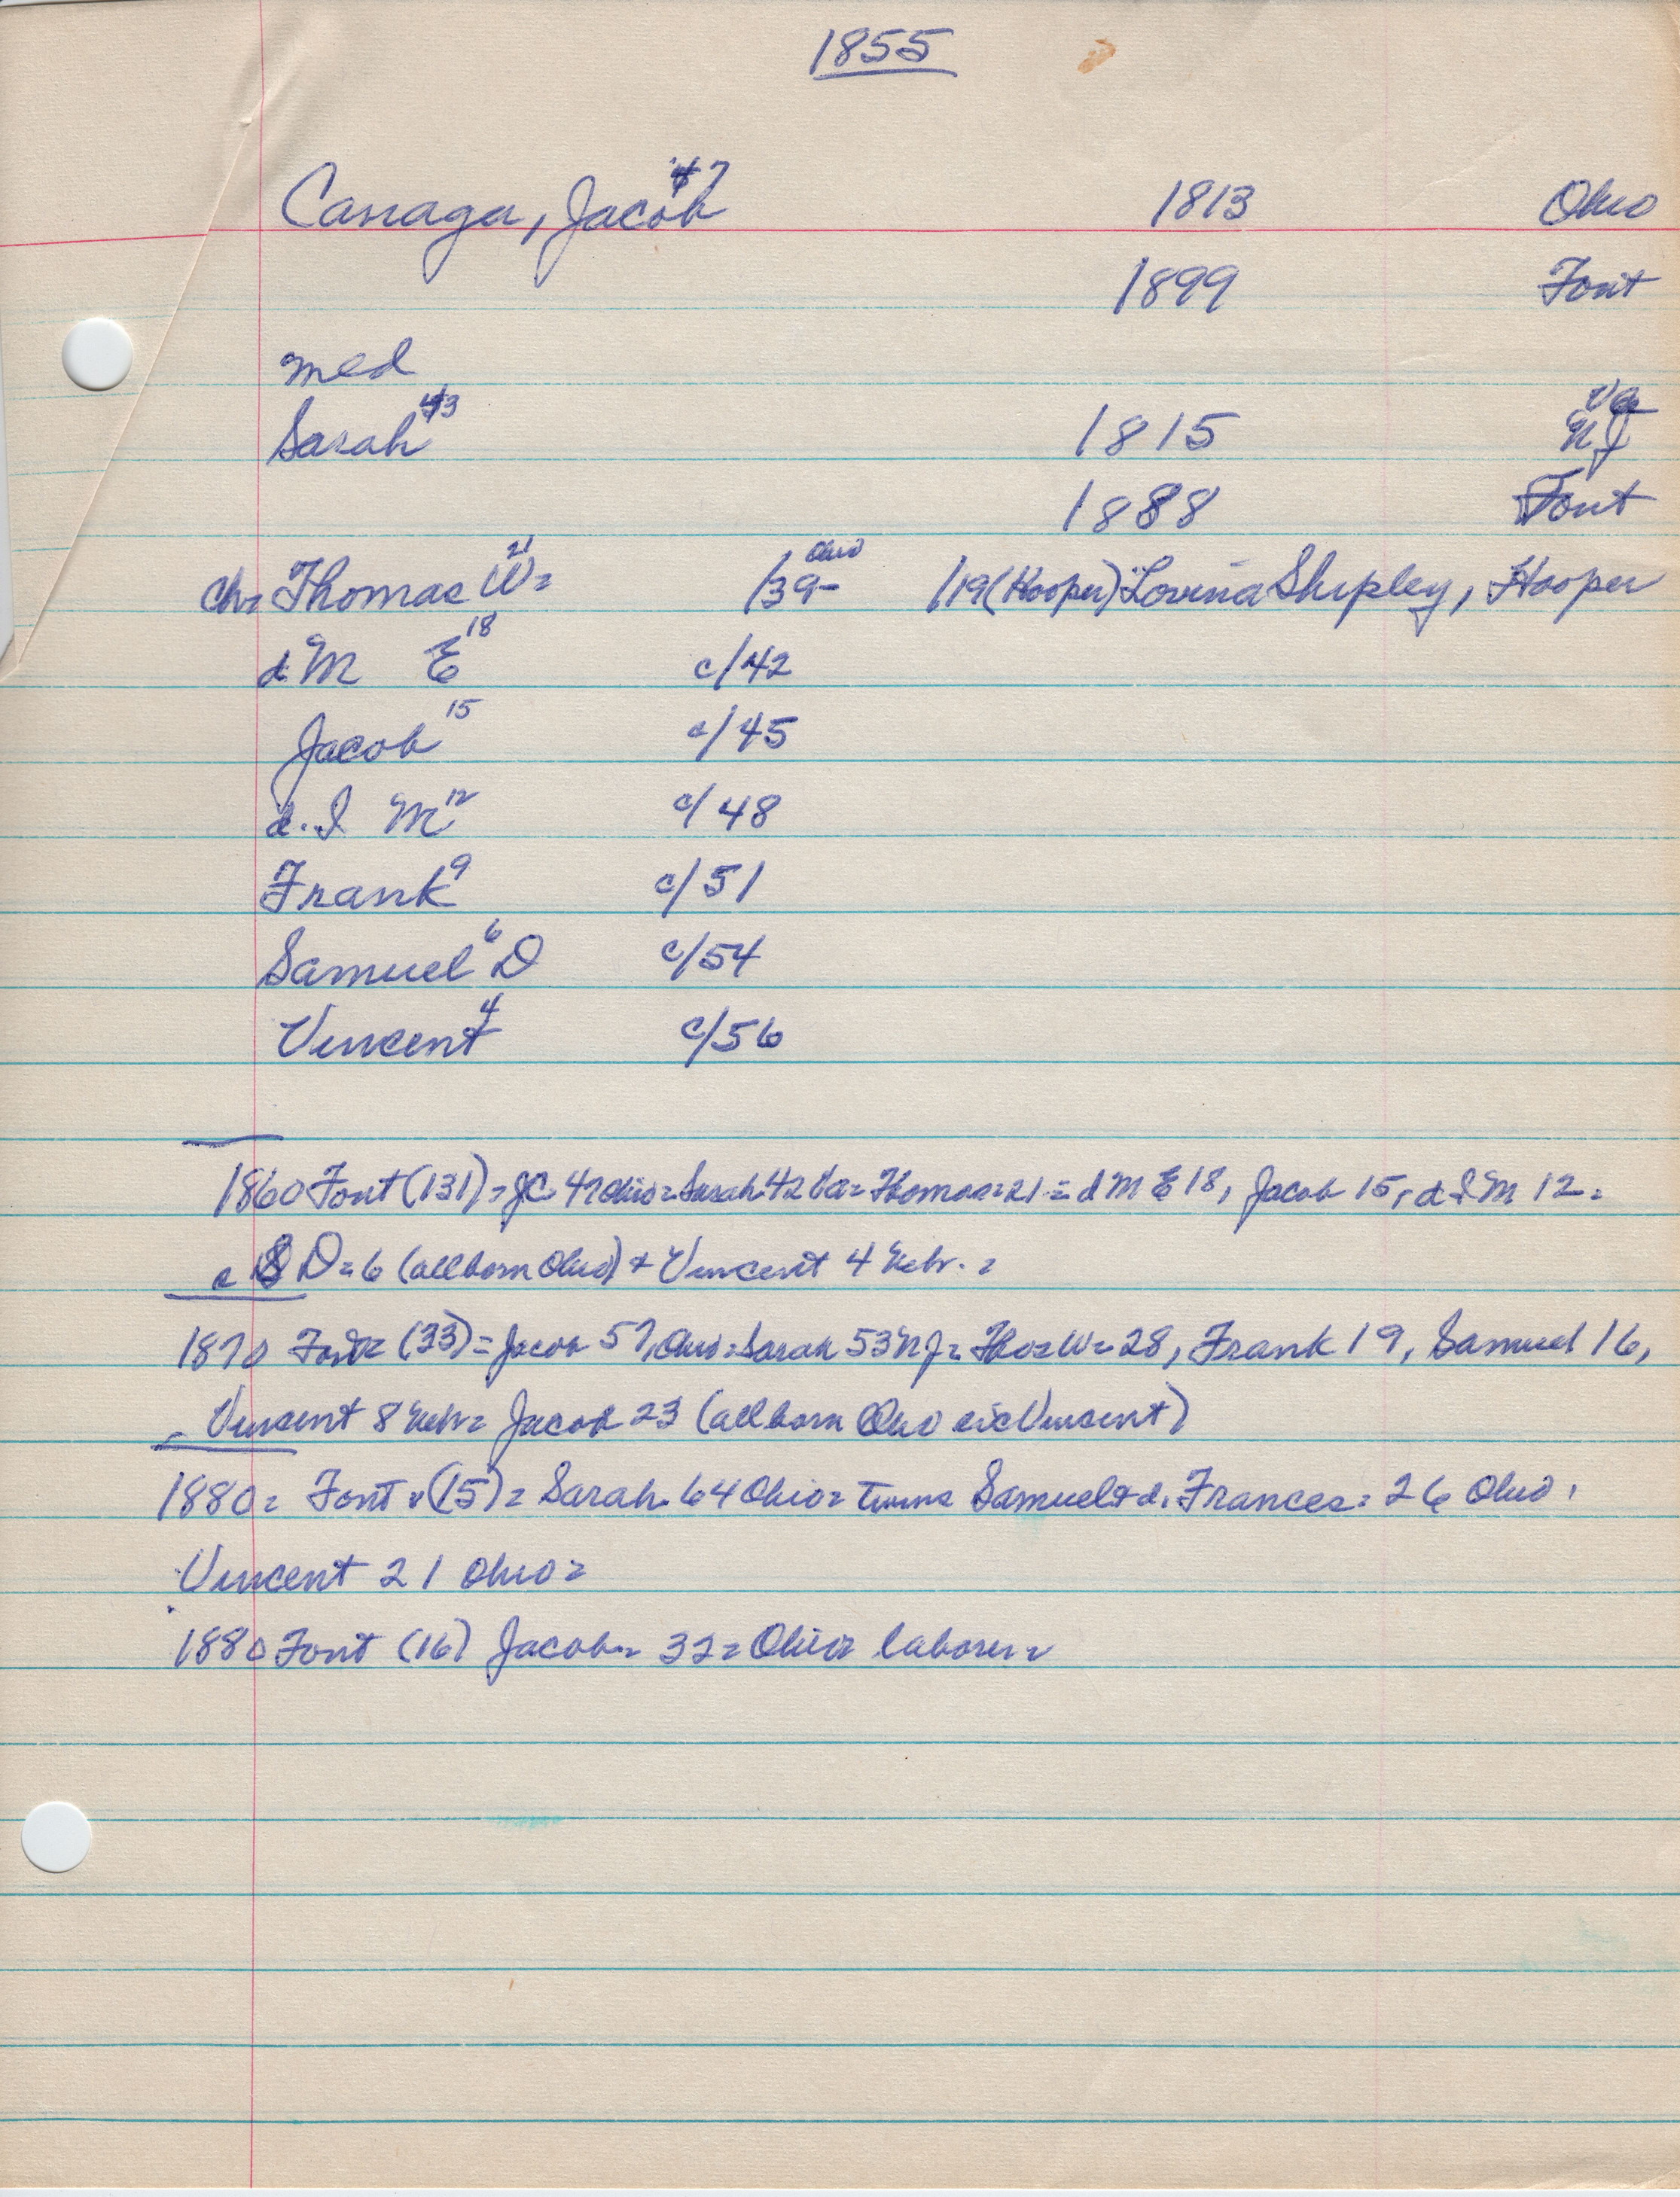 1855
Canaga, Jacob 47 1813 Ohio
1899 Font
med
Sarah 43 1815 Va NJ
1888 Font
ch= Thomas W= 21 /39- Ohio /19 (Hooper) Lovina Shipley, Hooper
d M E 18 c/42
Jacob 15 c/45
d. I M 12 c/48
Frank 9 c/51
Samuel 6 D c/54
Vincent 4 c/56
1860 Font (131) = JC 47 Ohio = Sarah 42 Va = Thomas = 21 = d M E 18, Jacob 15, d I M 12 =
S D = 6 (all born Ohio) + Vincent 4 Nebr. =
1870 Font = (33) = Jacob 57, Ohio = Sarah 53 NJ = Tho= W = 28, Frank 19, Samuel 16,
Vincent 8 Nebr = Jacob 23 (all born Ohio Vincent)
1880 = Font (15) = Sarah 64 Ohio = twins Samuel + d. Frances = 26 Ohio,
Vincent 21 Ohio =
1880 Font (16) Jacob = 32 = Ohio laborer =